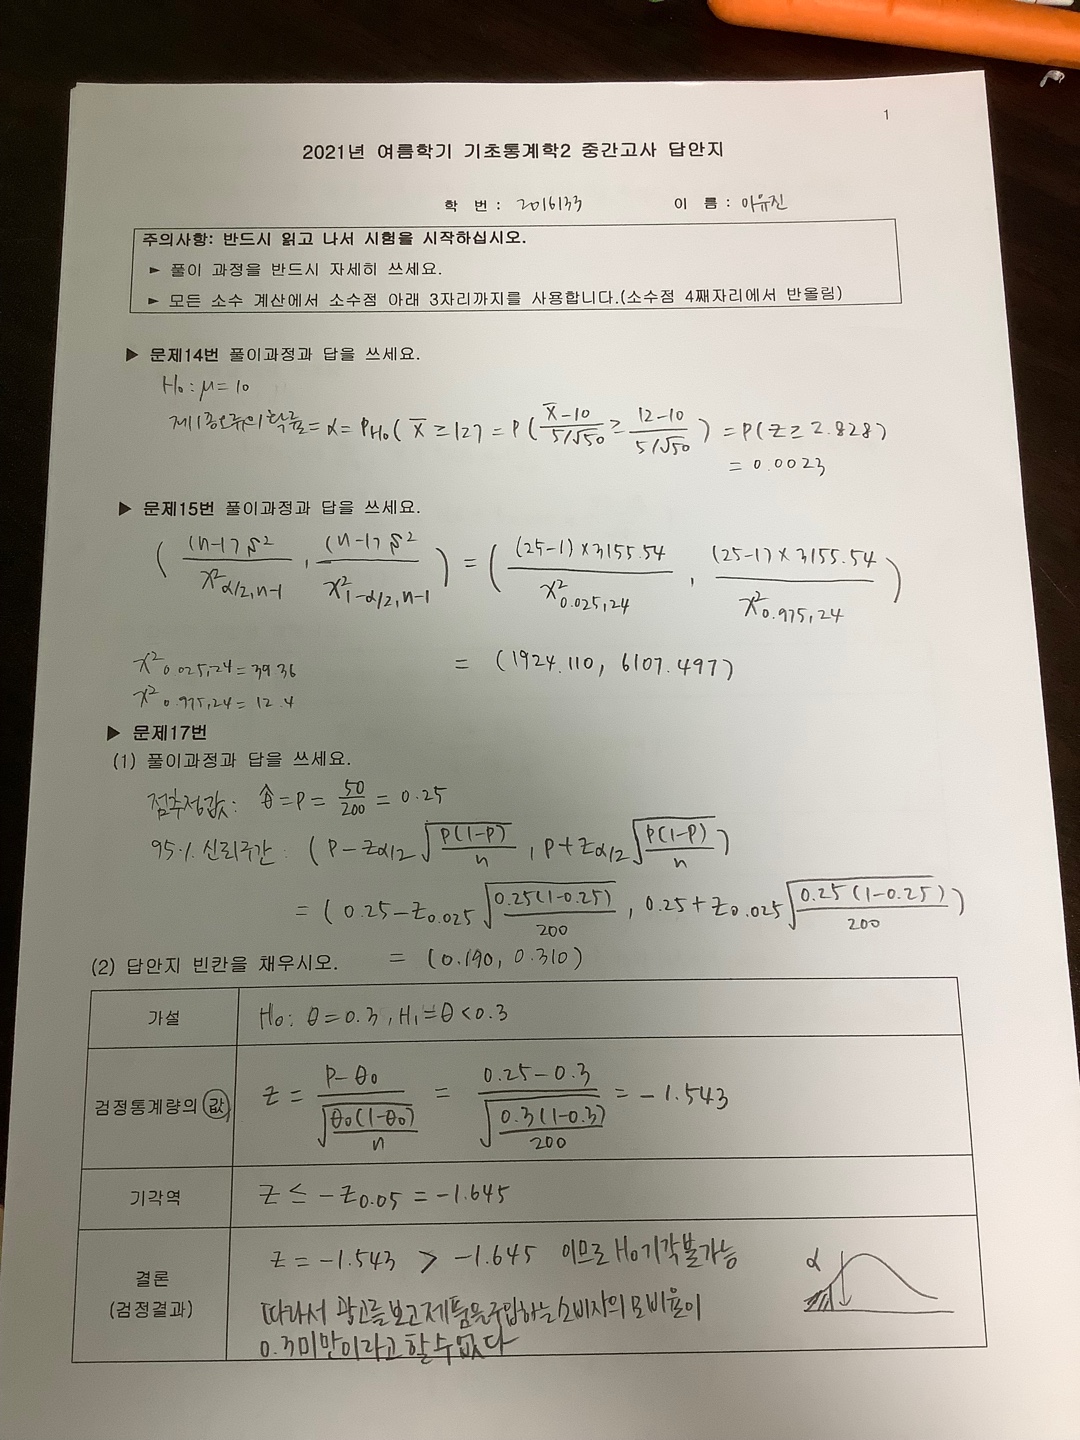 1
2021년 여름학기 기초통계학2 중간고사 답안지
학 번 : 2016133 이 름 : 이유진
주의사항: 반드시 읽고 나서 시험을 시작하십시오.
► 풀이 과정을 반드시 자세히 쓰세요.
► 모든 소수 계산에서 소수점 아래 3자리까지를 사용합니다.(소수점 4째자리에서 반올림)
▶ 문제14번 풀이과정과 답을 쓰세요.
H₀ : μ = 10
제1종오류의 확률 = α = P_H₀( X̄ ≥ 12) = P( (X̄-10)/(5/√50) ≥ (12-10)/(5/√50) ) = P(Z ≥ 2.828)
= 0.0023
▶ 문제15번 풀이과정과 답을 쓰세요.
( (n-1)S²/χ²_α/2,n-1 , (n-1)S²/χ²_1-α/2,n-1 ) = ( (25-1)×3155.54/χ²_0.025,24 , (25-1)×3155.54/χ²_0.975,24 )
= (1924.110, 6107.497)
χ²_0.025,24 = 39.36
χ²_0.975,24 = 12.4
▶ 문제17번
(1) 풀이과정과 답을 쓰세요.
점추정값: θ̂ = P = 50/200 = 0.25
95% 신뢰구간 : (P - Z_α/2 √(P(1-P)/n) , P + Z_α/2 √(P(1-P)/n))
= (0.25 - Z_0.025 √(0.25(1-0.25)/200) , 0.25 + Z_0.025 √(0.25(1-0.25)/200))
= (0.190, 0.310)
(2) 답안지 빈칸을 채우시오.
가설 H₀: θ = 0.3, H₁ = θ < 0.3
검정통계량의 값 Z = (P-θ₀)/√(θ₀(1-θ₀)/n) = (0.25-0.3)/√(0.3(1-0.3)/200) = -1.543
기각역 Z ≤ -Z_0.05 = -1.645
결론
(검정결과)
Z = -1.543 > -1.645 이므로 H₀ 기각불가능
α
따라서 광고를 보고 제품을 구입하는 소비자의 모비율이
0.3미만이라고 할 수 없다